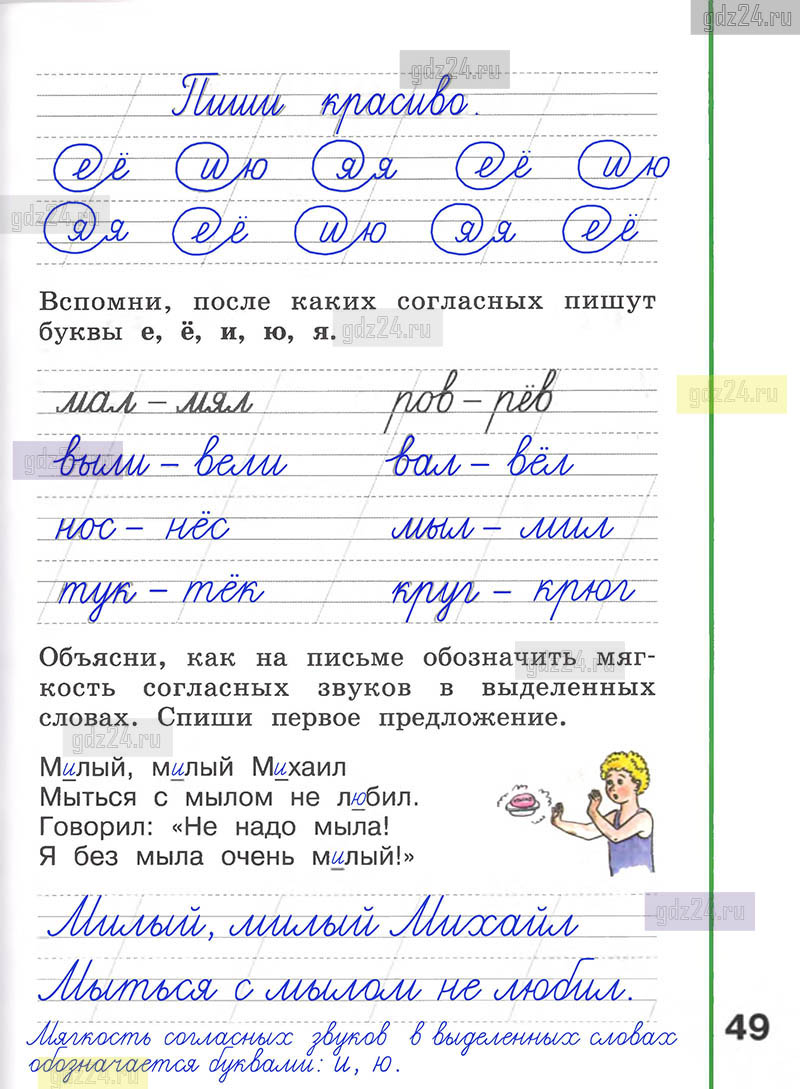 gdz24.ru
gdz24.ru
Пиши красиво.
её ию яя её ию
gdz24.ru
яя её ию яя её
Вспомни, после каких согласных пишут
буквы е, ё, и, ю, я.
gdz24.ru
gdz24.ru
мал – мял ров – рёв
gdz24.ru
выли – вели вал – вёл
нос – нёс мыл – мил
тук – тёк круг – крюг
Объясни, как на письме обозначить мяг-
gdz24.ru
кость согласных звуков в выделенных
словах. Спиши первое предложение.
gdz24.ru
Милый, милый Михаил
Мыться с мылом не любил.
Говорил: «Не надо мыла!
Я без мыла очень милый!»
gdz24.ru
Милый, милый Михайл
Мыться с мылом не любил.
49
Мягкость согласных звуков в выделенных словах
обозначается буквами: и, ю.
gdz24.ru